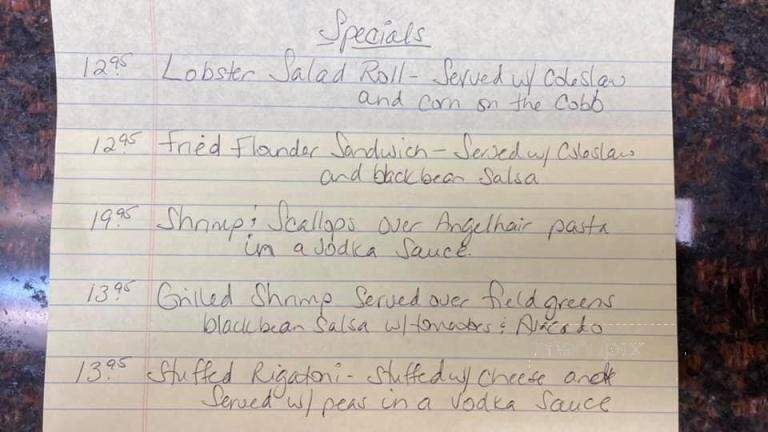 Specials
12.95 Lobster Salad Roll - Served w/ Coleslaw
and corn on the Cobb
12.95 Fried Flounder Sandwich - Served w/ Coleslaw
and black bean Salsa
19.95 Shrimp & Scallops over Angelhair pasta
in a Vodka Sauce.
13.95 Grilled Shrimp Served over field greens
blackbean Salsa w/ tomatoes & Avacado
13.95 Stuffed Rigatoni - Stuffed w/ Cheese and
Served w/ peas in a Vodka Sauce